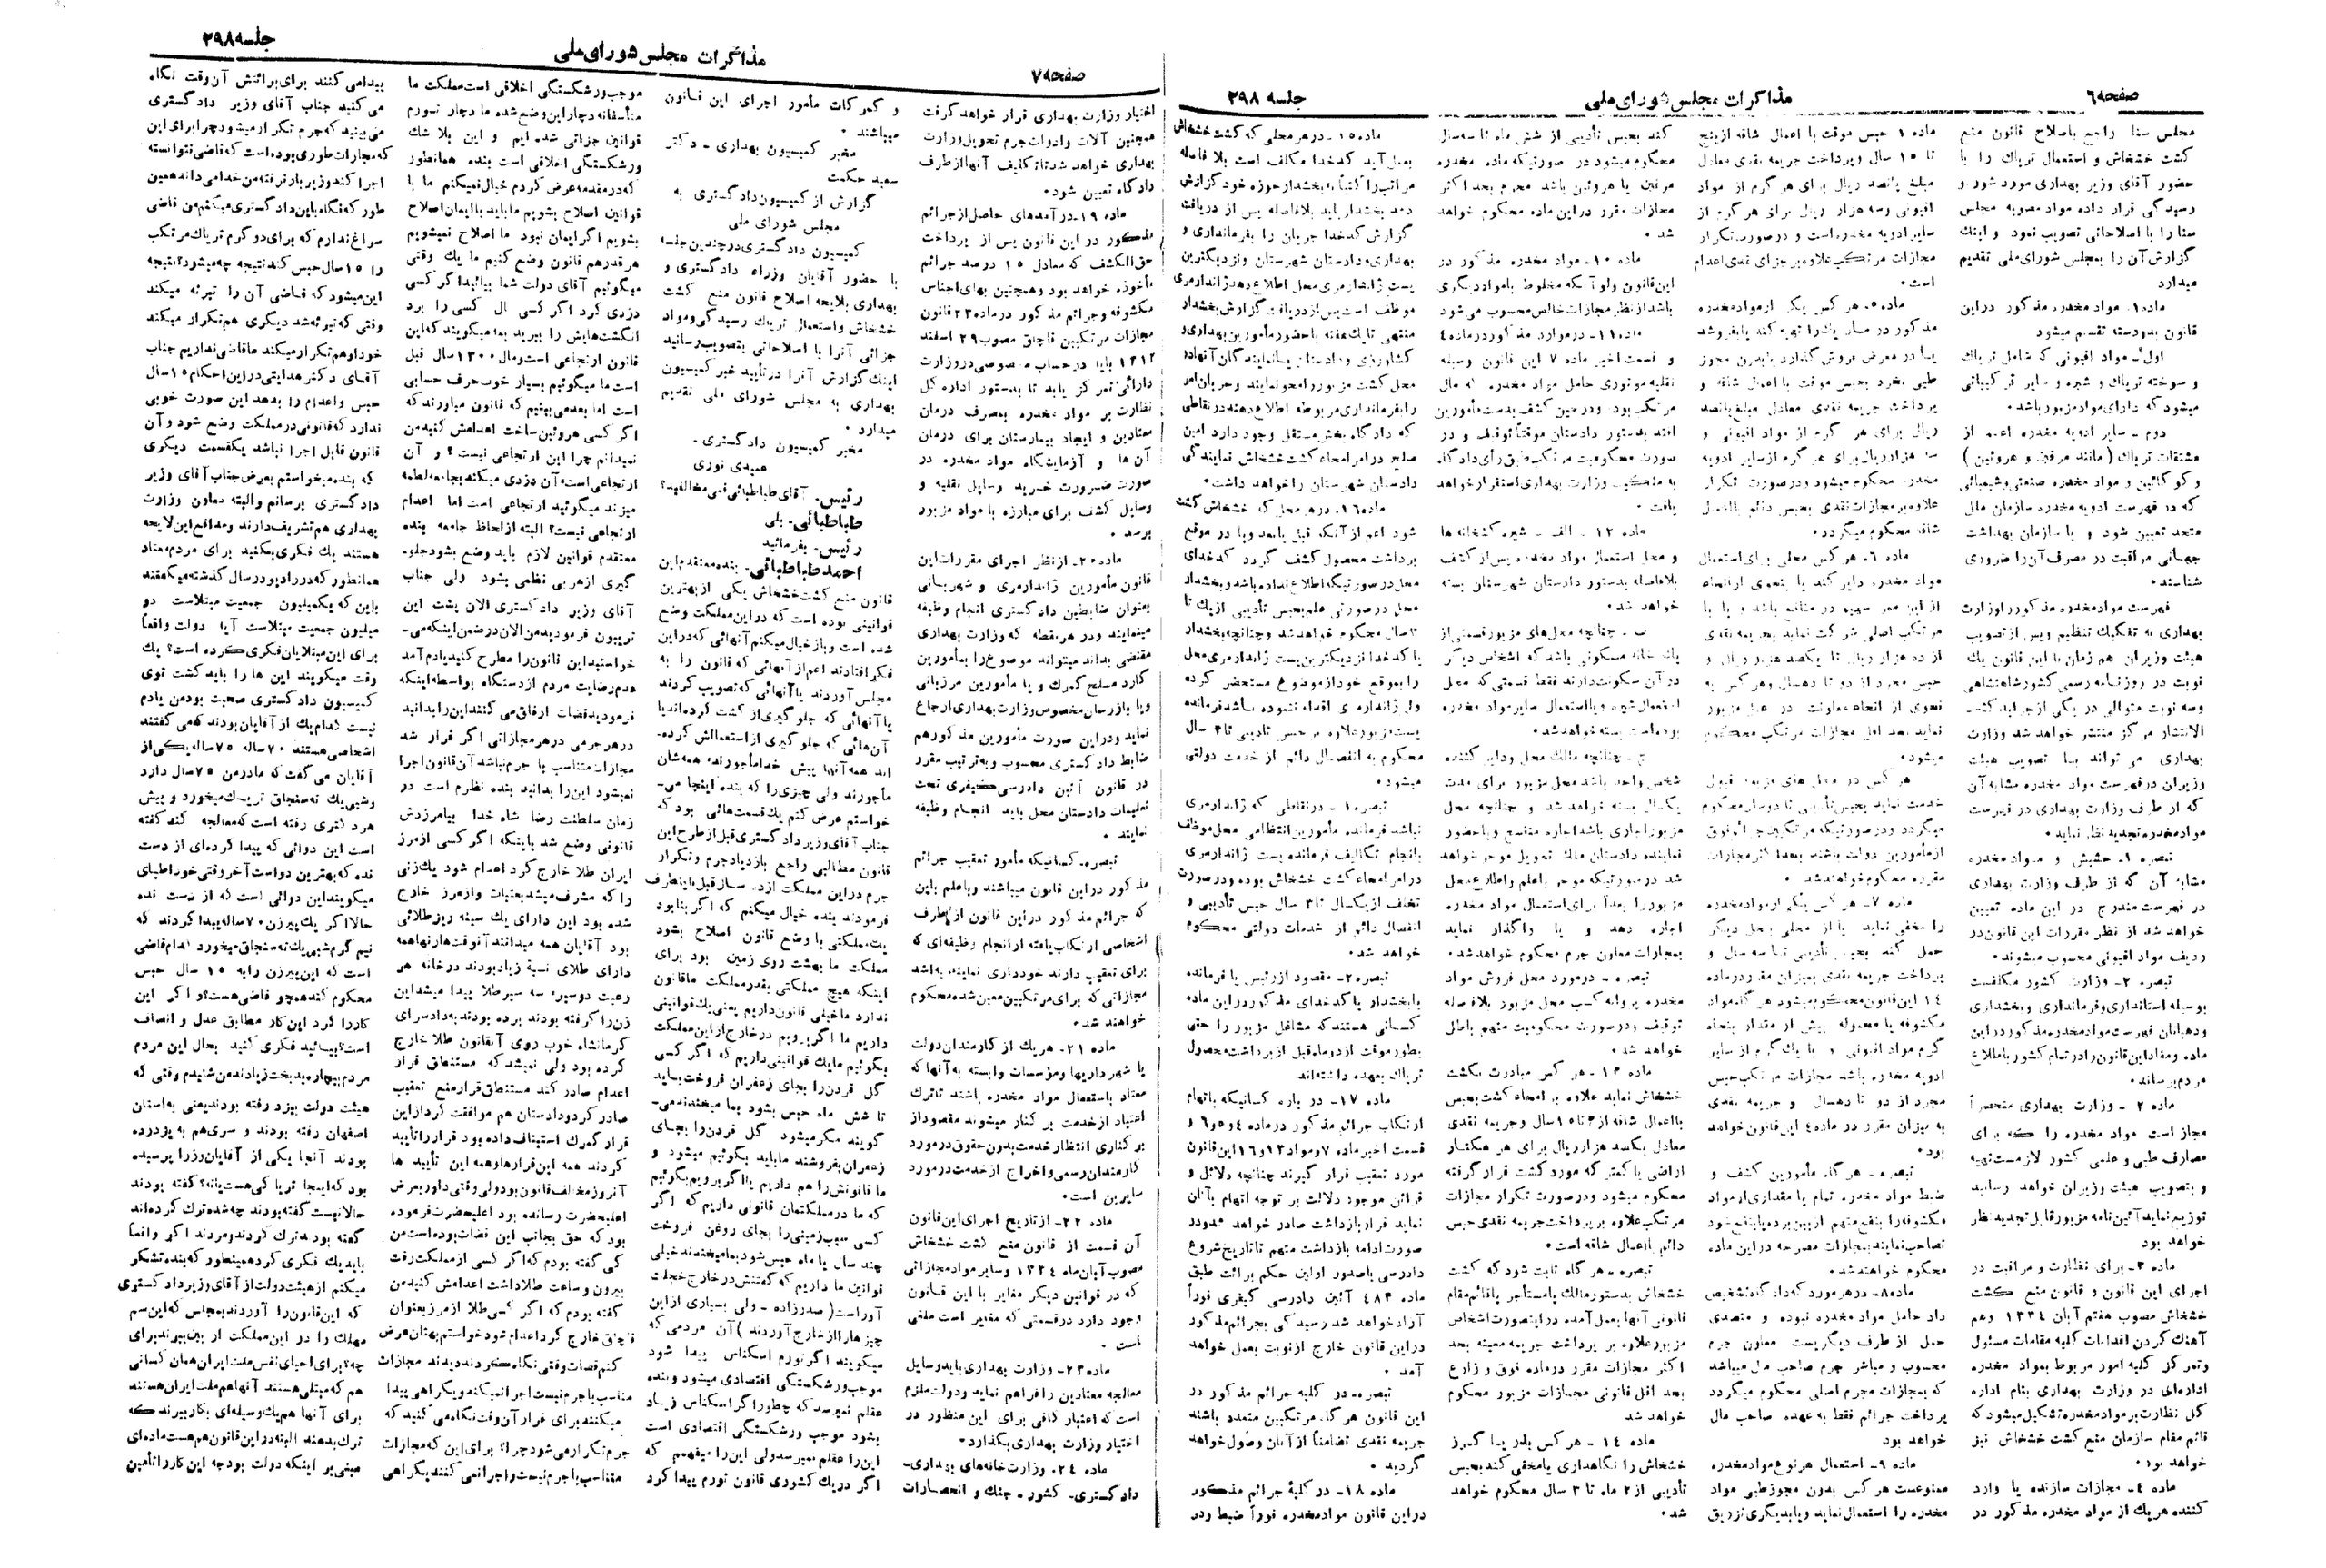 صفحه۶
مذاکرات مجلس شورای ملی
جلسه ۲۹۸
مجلس سنا راجع باصلاح قانون منع
کشت خشخاش و استعمال تریاك را با
حضور آقای وزیر بهداری مورد شور و
رسیدگی قرار داده مواد مصوبه مجلس
سنا را با اصلاحاتی تصویب نمود و اینك
گزارش آن را بمجلس شورای ملی تقدیم
میدارد
ماده۱ـ مواد مخدره مذکور در این
قانون بدودسته تقسیم میشود
اول ـ مواد افیونی که شامل تریاك
و سوخته تریاك و شیره و سایر ترکیباتی
میشود که دارای مواد مزبور باشد.
دوم ـ سایر ادویه مخدره اعم از
مشتقات تریاك (مانند مرفین و هروئین)
و کوکائین و مواد مخدره صنعتی وشیمیائی
که در فهرست ادویه مخدره سازمان ملل
متحد تعیین شود و یا سازمان بهداشت
جهانی مراقبت در مصرف آن را ضروری
شناسد.
فهرست مواد مخدره مذکور را وزارت
بهداری به تفکیك تنظیم و پس از تصویب
هیئت وزیران هم زمان با این قانون یك
نوبت در روزنامه رسمی کشور شاهنشاهی
وسه نوبت متوالی در یکی از جراید کثیر
الانتشار مرکز منتشر خواهد شد وزارت
بهداری می تواند با تصویب هیئت
وزیران در فهرست مواد مخدره مشابه آن
که از طرف وزارت بهداری در فهرست
مواد مخدره تجدید نظر نماید.
تبصره ۱ـ حشیش و مواد مخدره
مشابه آن که از طرف وزارت بهداری
در فهرست مندرج در این ماده تعیین
خواهد شد از نظر مقررات این قانون در
ردیف مواد افیونی محسوب میشوند.
تبصره ۲ـ وزارت کشور مکلفست
بوسیله استانداری و فرمانداری و بخشداری
ودهبانان فهرست مواد مخدره مذکور در این
ماده ومفاد این قانون را در تمام کشور باطلاع
مردم برساند.
ماده ۲ ـ وزارت بهداری منحصراً
مجاز است مواد مخدره را که برای
مصارف طبی و علمی کشور لازمست تهیه
و بتصویب هیئت وزیران خواهد رسانید
توزیع نماید آئین نامه مزبور قابل تجدید نظر
خواهد بود
ماده ۳ـ برای نظارت و مراقبت در
اجرای این قانون و قانون منع کشت
خشخاش مصوب هفتم آبان ۱۳۳۴ و هم
آهنگ کردن اقدامات کلیه مقامات مسئول
وتمرکز کلیه امور مربوط بمواد مخدره
اداره ای در وزارت بهداری بنام اداره
کل نظارت بر مواد مخدره تشکیل میشود که
قائم مقام سازمان منع کشت خشخاش نیز
خواهد بود.
ماده ٤ـ مجازات سازنده یا وارد
کننده هریك از مواد مخدره مذکور در
ماده ۱ حبس موقت با اعمال شاقه از پنج
تا ۱۵ سال و پرداخت جریمه نقدی معادل
مبلغ پانصد ریال برای هر گرم از مواد
افیونی وسه هزار ریال برای هر گرم از
سایر ادویه مخدره است و در صورت تکرار
مجازات مرتکب علاوه بر جزای نقدی اعدام
است.
ماده۵ـ هر کس یکی از مواد مخدره
یا در معرض فروش گذارد یا بدون مجوز
طبی بخرد بحبس موقت با اعمال شاقه و
پرداخت جریمه نقدی معادل مبلغ پانصد
ریال برای هر گرم از مواد افیونی و
سه هزار ریال برای هر گرم از سایر ادویه
مخدره محکوم میشود ودر صورت تکرار
علاوه بر مجازات نقدی بحبس دائم با اعمال
شاقه محکوم میگردد.
ماده ۶ـ هر کس محلی برای استعمال
مواد مخدره دایر کند یا بنحوی از انحاء
از این ممر سهیم در منافع باشد و یا با
مرتکب اصلی شرکت نماید بجریمه نقدی
از ده هزار ریال تا یکصد هزار ریال و
حبس مجرد از دو تا ده سال و هر کس به
نحوی از انحاء معاونت در عمل مزبور
نماید بحد اقل مجازات مرتکب محکوم
میشود.
هر کس در محل های مزبور قبول
خدمت نماید بحبس تأدیبی تا دوسال محکوم
میگردد ودر صورتیکه مرتکبین جرائم فوق
از مأمورین دولت باشند بحداکثر مجازات
مقرره محکوم خواهند شد.
ماده ۷ـ هر کس یکی از مواد مخدره
را مخفی نماید یا از محلی بمحل دیگر
حمل کند بحبس تأدیبی تا سه سال و
پرداخت جریمه نقدی بمیزان مقرر در ماده
۱۴ این قانون محکوم میشود هر گاه مواد
مکشوفه یا محموله بیش از مقدار پنجاه
گرم مواد افیونی و یا یك گرم از سایر
ادویه مخدره باشد مجازات مرتکب حبس
مجرد از دو تا ده سال و جریمه نقدی
به میزان مقرر در ماده٤ این قانون خواهد
بود.
تبصره ـ هر گاه مأمورین کشف و
ضبط مواد مخدره تمام یا مقداری از مواد
مکشوفه را بنفع متهم از بین برده یا بنفع خود
تصاحب نمایند بمجازات مصرحه در این ماده
محکوم خواهند شد.
ماده۸ـ در هر مورد که دادگاه تشخیص
داد حامل مواد مخدره نبوده و متصدی
حمل از طرف دیگریست معاون جرم
محسوب و مباشر جرم صاحب مال میباشد
که بمجازات مجرم اصلی محکوم میگردد
پرداخت جرائم فقط به عهده صاحب مال
خواهد بود
ماده ۹ـ استعمال هر نوع مواد مخدره
ممنوعست هر کس بدون مجوز طبی مواد
مخدره را استعمال نماید و یا بدیگری تزریق
کند بحبس تأدیبی از شش ماه تا سه سال
محکوم میشود در صورتیکه ماده مخدره
مرفین یا هروئین باشد مجرم بحد اکثر
مجازات مقرر در این ماده محکوم خواهد
شد.
ماده ۱۰ـ مواد مخدره مذکور در
این قانون ولو آنکه مخلوط با مواد دیگری
باشد از نظر مجازات خالص محسوب میشود
ماده۱۱ـ در موارد مذکور در ماده ٤
و قسمت اخیر ماده ۷ این قانون وسیله
نقلیه موتوری حامل مواد مخدره که مال
مرتکب بود ودر حین کشف بدست مأمورین
افتد بدستور دادستان موقتاً توقیف و در
صورت محکومیت مرتکب طبق رأی دادگاه
به ملکیت وزارت بهداری استقرار خواهد
یافت.
ماده ۱۲ ـ الف ـ شیره کشخانه ها
و محل استعمال مواد مخدره پس از کشف
بلافاصله بدستور دادستان شهرستان بسته
خواهد شد.
ب ـ چنانچه محل های مزبور قسمتی از
یك خانه مسکونی باشد که اشخاص دیگر
در آن سکونت دارند فقط قسمتی که محل
استعمال شیره ویا استعمال سایر مواد مخدره
بوده است بسته خواهد شد.
ج ـ چنانچه مالك محل ودایر کننده
شخص واحد باشد محل مزبور برای مدت
یکسال بسته خواهد شد و چنانچه محل
مزبور اجاری باشد اجاره منفسخ و با حضور
نماینده دادستان ملك تحویل موجر خواهد
شد در صورتیکه موجر با علم و اطلاع محل
مزبور را بعداً برای استعمال مواد مخدره
اجاره دهد و یا واگذار نماید
بمجازات معاون جرم محکوم خواهد شد.
تبصره ـ در مورد محل فروش مواد
مخدره پروانه کسب محل مزبور بلافاصله
توقیف ودر صورت محکومیت متهم باطل
خواهد شد.
ماده ۱۳ ـ هر کس مبادرت بکشت
خشخاش نماید علاوه بر امحاء کشت بحبس
با اعمال شاقه از ۳ تا ۱۵ سال و جریمه نقدی
معادل یکصد هزار ریال برای هر هکتار
اراضی یا کمتر که مورد کشت قرار گرفته
محکوم میشود ودر صورت تکرار مجازات
مرتکب علاوه بر پرداخت جریمه نقدی حبس
دائم با اعمال شاقه است.
تبصره ـ هر گاه ثابت شود که کشت
خشخاش بدستور مالك یا مستأجر یا قائم مقام
قانونی آنها بعمل آمده در اینصورت اشخاص
مزبور علاوه بر پرداخت جریمه معینه بحد
اکثر مجازات مقرر در ماده فوق و زارع
بحد اقل قانونی مجازات مزبور محکوم
خواهد شد
ماده ۱۴ ـ هر کس بذر یا گرز
خشخاش را نگاهداری یا مخفی کند بحبس
تأدیبی از ۲ ماه تا ۳ سال محکوم خواهد
شد.
ماده۱۵ ـ در هر محلی که کشت خشخاش
بعمل آید کدخدا مکلف است بلا فاصله
مراتب را کتباً به بخشدار حوزه خود گزارش
دهد بخشدار باید بلافاصله پس از دریافت
گزارش کدخدا جریان را بفرمانداری و
بهداری و دادستان شهرستان ونزدیکترین
پست ژاندارمری محل اطلاع دهد ژاندارمری
موظف است پس از دریافت گزارش بخشدار
منتهی تا یك هفته با حضور مأمورین بهداری و
کشاورزی ودادستان یا نمایندگان آنها در
محل کشت مزبور را محو نمایند و جریان امر
را بفرمانداری مربوطه اطلاع دهند در نقاطی
که دادگاه بخش مستقل وجود دارد امین
صلح در امر امحاء کشت خشخاش نمایندگی
دادستان شهرستان را خواهد داشت.
ماده۱۶ـ در هر محل که خشخاش کشت
شود اعم از آنکه قبل یا بعد ویا در موقع
برداشت محصول کشف گردد کدخدای
محل در صورتیکه اطلاع نداده باشد وبخشدار
محل در صورتی علم بحبس تأدیبی از یك تا
۳ سال محکوم خواهد شد و چنانچه بخشدار
یا کدخدا نزدیکترین پست ژاندارمری محل
را بموقع خود از موضوع مستحضر کرده
ولی ژاندارمری اقدام ننموده باشد فرمانده
پست مزبور علاوه بر حبس تأدیبی تا ۳ سال
محکوم به انفصال دائم از خدمت دولتی
میشود.
تبصره۱ ـ در نقاطی که ژاندارمری
نباشد فرمانده مأمورین انتظامی محل موظف
بانجام تکالیف فرمانده پست ژاندارمری
در امر امحاء کشت خشخاش بوده ودر صورت
تخلف از یکسال تا ۳ سال حبس تأدیبی و
انفصال دائم از خدمات دولتی محکوم
خواهد شد.
تبصره۲ـ مقصود از رئیس یا فرمانده
یا بخشدار یا کدخدای مذکور در این ماده
کسانی هستند که مشاغل مزبور را حتی
بطور موقت از دوماه قبل از برداشت محصول
تریاك بعهده داشته اند
ماده ۱۷ـ در باره کسانیکه باتهام
ارتکاب جرائم مذکور در ماده ٤و۵و۶ و
قسمت اخیر ماده ۷ ومواد۱۳و۱۶ این قانون
مورد تعقیب قرار گیرند چنانچه دلائل و
قرائن موجود دلالت بر توجه اتهام بآنان
نماید قرار بازداشت صادر خواهد شد ودر
صورت ادامه بازداشت متهم تا تاریخ شروع
دادرسی یا صدور اولین حکم برائت طبق
ماده ۴۸۳ آئین دادرسی کیفری فوراً
آزاد خواهد شد رسیدگی بجرائم مذکور
در این قانون خارج از نوبت بعمل خواهد
آمد.
تبصره ـ در کلیه جرائم مذکور در
این قانون هر گاه مرتکبین متعدد باشند
جریمه نقدی تضامناً از آنان وصول خواهد
گردید.
ماده ۱۸ـ در کلیهٔ جرائم مذکور
در این قانون مواد مخدره فوراً ضبط ودر
صفحه۷
مذاکرات مجلس شورای ملی
جلسه۲۹۸
اختیار وزارت بهداری قرار خواهد گرفت
همچنین آلات وادوات جرم تحویل وزارت
بهداری خواهد شد تا تکلیف آنها از طرف
دادگاه تعیین شود.
ماده ۱۹ـ در آمدهای حاصل از جرائم
مذکور در این قانون پس از پرداخت
حق الکشف که معادل ۱۵ درصد جرائم
مأخوذه خواهد بود و همچنین بهای اجناس
مکشوفه و جرائم مذکور در ماده ۲۳ قانون
مجازات مرتکبین قاچاق مصوب ۲۹ اسفند
۱۳۱۲ باید در حساب مخصوصی در وزارت
دارائی تمرکز یابد تا بدستور اداره کل
نظارت بر مواد مخدره بمصرف درمان
معتادین و ایجاد بیمارستان برای درمان
آن ها و آزمایشگاه مواد مخدره در
صورت ضرورت خرید وسایل نقلیه و
وسایل کشف برای مبارزه با مواد مزبور
برسد.
ماده۲۰ـ از نظر اجرای مقررات این
قانون مأمورین ژاندارمری و شهربانی
بعنوان ضابطین دادگستری انجام وظیفه
مینمایند ودر هر نقطه که وزارت بهداری
مقتضی بداند میتواند موضوع را بمأمورین
گارد مسلح گمرك و یا مأمورین مرزبانی
ویا بازرسان مخصوص وزارت بهداری ارجاع
نماید ودر این صورت مأمورین مذکور هم
ضابط دادگستری محسوب و به ترتیب مقرر
در قانون آئین دادرسی کیفری تحت
تعلیمات دادستان محل باید انجام وظیفه
نمایند.
تبصره ـ کسانیکه مأمور تعقیب جرائم
مذکور در این قانون میباشند و با علم باین
که جرائم مذکور در این قانون از طرف
اشخاصی ارتکاب یافته از انجام وظیفه ای که
برای تعقیب دارند خودداری نمایند به اشد
مجازاتی که برای مرتکبین معین شده محکوم
خواهند شد.
ماده ۲۱ـ هریك از کارمندان دولت
یا شهرداریها ومؤسسات وابسته به آنها که
معتاد باستعمال مواد مخدره باشند تا ترك
اعتیاد از خدمت بر کنار میشوند مقصود از
برکناری انتظار خدمت بدون حقوق در مورد
کارمندان رسمی و اخراج از خدمت در مورد
سایرین است.
ماده ۲۲ـ از تاریخ اجرای این قانون
آن قسمت از قانون منع کشت خشخاش
مصوب آبان ماه ۱۳۳۴ وسایر مواد مجازاتی
که در قوانین دیگر مغایر با این قانون
وجود دارد در قسمتی که مغایر است ملغی
است.
ماده۲۳ـ وزارت بهداری باید وسایل
معالجه معتادین را فراهم نماید و دولت ملزم
است که اعتبار کافی برای این منظور در
اختیار وزارت بهداری بگذارد.
ماده ۲۴ـ وزارت خانه های بهداری ـ
دادگستری ـ کشور ـ جنگ و انحصارات
و گمرکات مأمور اجرای این قانون
میباشند.
مخبر کمیسیون بهداری ـ دکتر
سعید حکمت
گزارش از کمیسیون دادگستری به
مجلس شورای ملی
کمیسیون دادگستری در چندین جلسه
با حضور آقایان وزراء دادگستری و
بهداری بلایحه اصلاح قانون منع کشت
خشخاش واستعمال تریاك رسیدگی ومواد
جزائی آنرا با اصلاحاتی بتصویب رسانید
اینك گزارش آنرا در تأیید خبر کمیسیون
بهداری به مجلس شورای ملی تقدیم
میدارد.
مخبر کمیسیون دادگستری ـ
عمیدی نوری
رئیس ـ آقای طباطبائی قمی مخالفید؟
طباطبائی ـ بلی
رئیس ـ بفرمائید
احمد طباطبائی ـ بنده معتقدم این
قانون منع کشت خشخاش یکی از بهترین
قوانینی بوده است که در این مملکت وضع
شده است و باز خیال میکنم آنهائی که در این
فکر افتادند اعم از آنهائی که قانون را به
مجلس آوردند یا آنهائی که تصویب کردند
یا آنهائی که جلوگیری از کشت کرده اند یا
آن هائی که جلوگیری از استعمالش کرده ـ
اند همه آنها پیش خدا مأجورند، همه شان
مأجورند ولی چیزی را که بنده اینجا می ـ
خواستم عرض کنم یك قسمت هائی بود که
جناب آقای وزیر دادگستری قبل از طرح این
قانون مطالبی راجع بازدیاد جرم و تکرار
جرم در این مملکت
فرمودند بنده خیال میکنم که اگر بنا بود
یك مملکتی با وضع قانون اصلاح بشود
مملکت ما بهشت روی زمین بود برای
اینکه هیچ مملکتی بقدر مملکت ما قانون
ندارد ما خیلی قانون داریم یعنی یك قوانینی
داریم ما اگر برویم در خارج از این مملکت
بگوئیم ما یك قوانینی داریم که اگر کسی
گل قردن را بجای زعفران فروخت باید
تا شش ماه حبس بشود بما میخندند می ـ
گویند مگر میشود گل قردن را بجای
زعفران بفروشند ما باید بگوئیم میشود و
ما قانونش را هم داریم یا اگر برویم بگوئیم
که ما در مملکتمان قانونی داریم که اگر
کسی سیب زمینی را بجای روغن فروخت
چند سال یا ماه حبس شود بما میخندند خیلی
قوانین ما داریم که گفتنش در خارج خجلت
آور است (صدرزاده ـ ولی بسیاری از این
چیزها را از خارج آوردند) آن مردمی که
میگویند اگر تورم اسکناس پیدا شود
موجب ورشکستگی اقتصادی میشود و بنده
عقلم نمیرسد که چطور اگر اسکناس زیاد
بشود موجب ورشکستگی اقتصادی است
این را عقلم نمیرسد ولی این را میفهمم که
اگر در یك کشوری قانون تورم پیدا کرد
موجب ورشکستگی اخلاقی است مملکت ما
متأسفانه دچار این وضع شده ما دچار تورم
قوانین جزائی شده ایم و این بلا شك
ورشکستگی اخلاقی است بنده همانطور
که در مقدمه عرض کردم خیال نمیکنم ما با
قوانین اصلاح بشویم ما باید با ایمان اصلاح
بشویم اگر ایمان نبود ما اصلاح نمیشویم
هر قدر هم قانون وضع کنیم ما یك وقتی
میگوئیم آقای دولت شما بیائید اگر کسی
دزدی کرد اگر کسی مال کسی را برد
انگشت هایش را ببرید بما میگویند که این
قانون ارتجاعی است و مال ۱۳۰۰ سال قبل
است ما میگوئیم بسیار خوب حرف حسابی
است اما بعد می بینیم که قانون میآورند که
اگر کسی هروئین ساخت اعدامش کنید من
نمیدانم چرا این ارتجاعی نیست؟ و آن
ارتجاعی است، آن دزدی میکند بجامعه لطمه
میزند میگوئید ارتجاعی است اما اعدام
ارتجاعی نیست؟ البته از لحاظ جامعه بنده
معتقدم قوانین لازم باید وضع بشود جلو ـ
گیری از هر بی نظمی بشود ولی جناب
آقای وزیر دادگستری الان پشت این
تریبون فرمودید من الان در ضمن اینکه می ـ
خواستید این قانون را مطرح کنید یادم آمد
عدم رضایت مردم از دستگاه بواسطه اینکه
فرمودید قضات ارفاق می کنند این را بدانید
در هر جرمی در هر مجازاتی اگر قرار شد
مجازات متناسب با جرم نباشد آن قانون اجرا
نمیشود این را بدانید بنده نظرم است در
زمان سلطنت رضا شاه خدا بیامرزدش
قانونی وضع شد باینکه اگر کسی از مرز
ایران طلا خارج کرد اعدام شود یك زنی
را که مشرف میشد بعتبات و از مرز خارج
شده بود این دارای یك سینه ریز طلائی
بود آقایان همه میدانند آنوقت ها زنها همه
دارای طلای نسبة زیاد بودند در خانه هر
رعیت دو سیر، سه سیر طلا پیدا میشد این
زن را گرفته بودند برده بودند به دادسرای
کرمانشاه خوب روی آن قانون طلا خارج
کرده بود ولی نمیشد که مستنطق قرار
اعدام صادر کند مستنطق قرار منع تعقیب
صادر کرد و دادستان هم موافقت کرد از این
قرار گمرك استیناف داده بود قرار را تأیید
کردند همه این قرارها و همه این تأیید ها
آنروز مخالف قانون بود ولی وقتی داور بعرض
اعلیحضرت رسانده بود اعلیحضرت فرموده
بود که حق بجانب این قضات بوده است من
کی گفته بودم که اگر کسی از مملکت رفت
بیرون و ساعت طلا داشت اعدامش کنید من
گفته بودم که اگر کسی طلا از مرز بعنوان
قاچاق خارج کرد اعدام شود خواستم بهتان عرض
کنم قضات وقتی نگاه کردند دیدند مجازات
مناسب با جرم نیست اجرا نمیکند و یك راهی پیدا
میکنند برای فرار آن وقت نگاه می کنید که
جرم تکرار می شود چرا؟ برای این که مجازات
متناسب با جرم نیست و اجرا نمی کنند یك راهی
پیدا می کنند برای برائتش آن وقت نگاه
می کنید جناب آقای وزیر دادگستری
می بینید که جرم تکرار میشود چرا برای این
که مجازات طوری بوده است که قاضی نتوانسته
اجرا کند وزیر بار نرفته من خدا می داند همین
طور که نگاه باین دادگستری میکنم من قاضی
سراغ ندارم که برای دو گرم تریاك مرتکب
را ۱۵ سال حبس کند نتیجه چه میشود؟ نتیجه
این میشود که قاضی آن را تبرئه میکند
وقتی که تبرئه شد دیگری هم تکرار میکند
خود او هم تکرار میکند ما قاضی نداریم جناب
آقای دکتر هدایتی در این احکام ۱۵ سال
حبس واعدام را بدهد این صورت خوبی
ندارد که قانونی در مملکت وضع شود و آن
قانون قابل اجرا نباشد یکقسمت دیگری
که بنده میخواستم بعرض جناب آقای وزیر
دادگستری برسانم والبته معاون وزارت
بهداری هم تشریف دارند و مدافع این لایحه
هستند یك فکری بکنید برای مردم معتاد
همانطور که در رادیو در سال گذشته میگفتند
باین که یکمیلیون جمعیت مبتلاست دو
میلیون جمعیت مبتلاست آیا دولت واقعاً
برای این مبتلایان فکری کرده است؟ یك
وقت میگویند این ها را باید کشت توی
کمیسیون دادگستری صحبت بود من یادم
نیست کدام یك از آقایان بودند که می گفتند
اشخاصی هستند ۷۰ ساله ۷۵ ساله یکی از
آقایان می گفت که مادر من ۷۵ سال دارد
وشبی یك ته سنجاق تریاك میخورد و پیش
هر دکتری رفته است که معالجه کند گفته
است این دوائی که پیدا کرده ای از دست
نده که بهترین دواست آخر وقتی خود اطبای
میگویند این دوائی است که از دست نده
حالا اگر یك پیرزن ۷۰ ساله پیدا کردند که
نیم گرم شبی یك ته سنجاق میخورد کدام قاضی
است که این پیرزن را به ۱۵ سال حبس
محکوم کند همچو قاضی هست؟ و اگر این
کار را کرد این کار مطابق عدل و انصاف
است؟ بیائید فکری کنید بحال این مردم
مردم بیچاره بدبخت زیادند من شنیدم وقتی که
هیئت دولت بیزد رفته بودند یعنی به استان
اصفهان رفته بودند و سری هم به یزد زده
بودند آنجا یکی از آقایان وزرا پرسیده
بود که اینجا تریاکی هست یا نه؟ گفته بودند
حالا نیست گفته بودند چه شده ترك کرده اند
گفته بودند ترك کردند و مردند اگر واقعاً
باید یك فکری کرد همینطور که بنده تشکر
میکنم از هیئت دولت از آقای وزیر دادگستری
که این قانون را آوردند بمجلس که این سم
مهلك را در این مملکت از بین ببرند برای
چه؟ برای احیای نفس ملت ایران همان کسانی
هم که مبتلی هستند آنها هم ملت ایران هستند
برای آنها هم یك وسیله ای بکار ببرند که
ترك بدهند البته در این قانون هم هست ماده ای
مبنی بر اینکه دولت بودجه این کار را تأمین